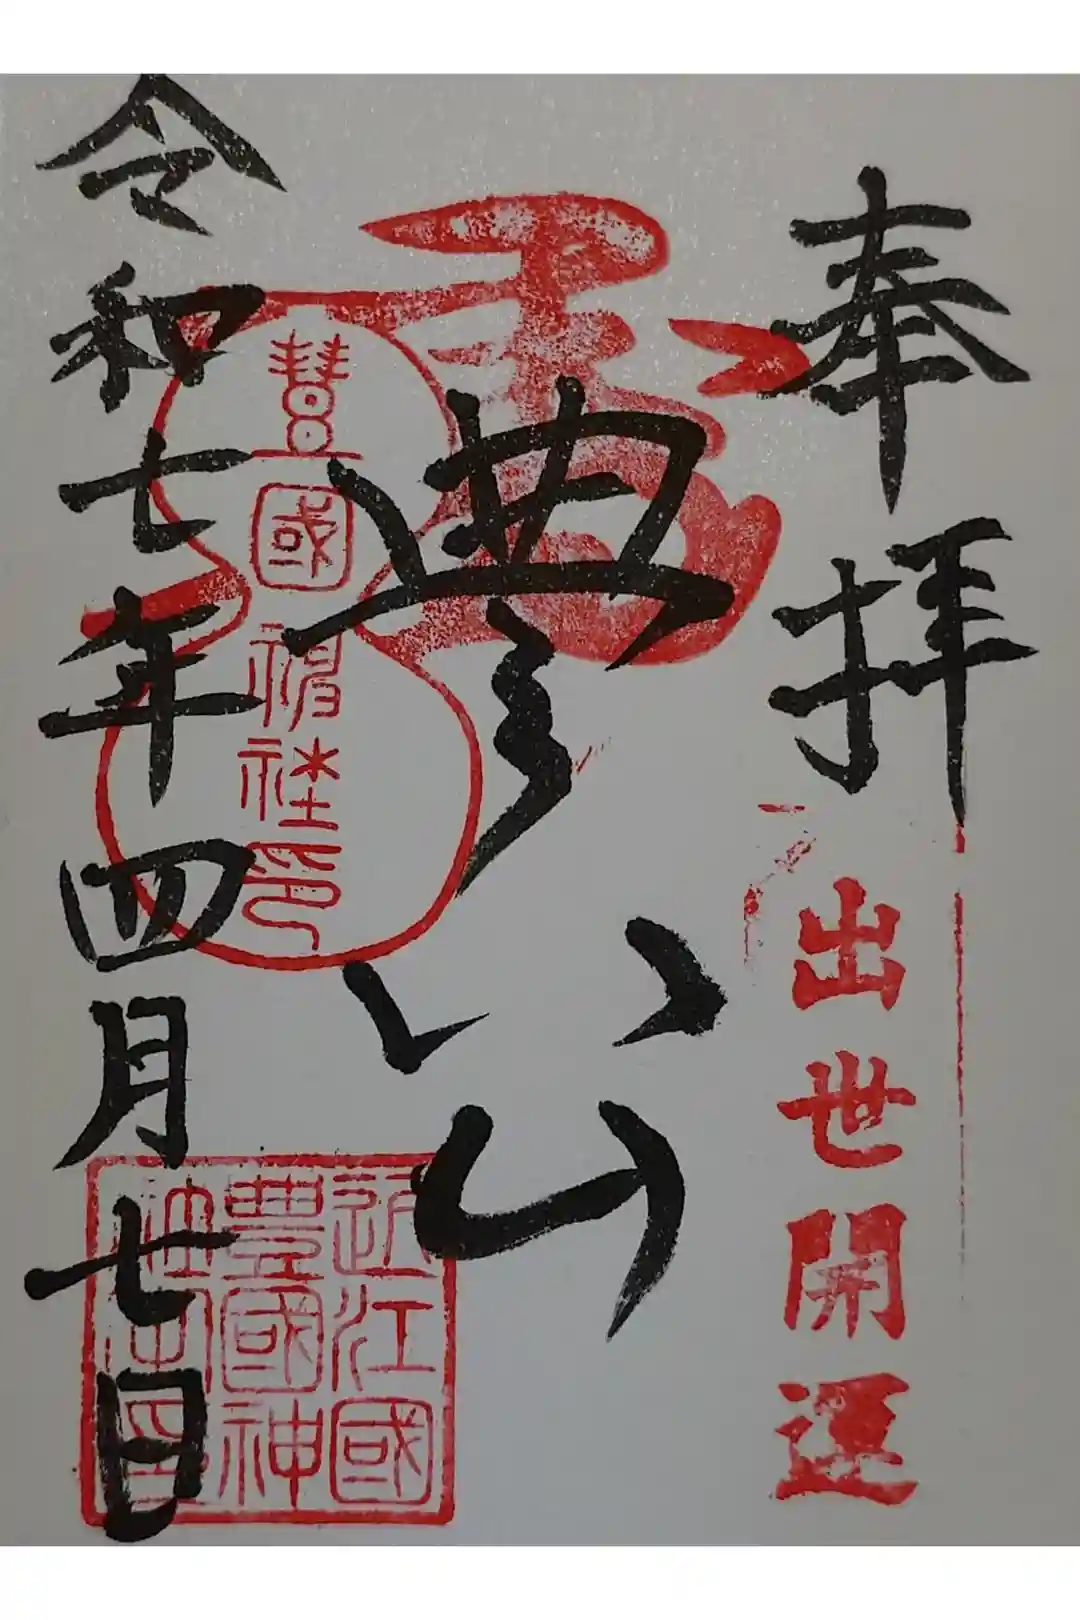 奉拝
出世開運
豊公
豊國神社印
近江國
豊國神
社之印
令和七年四月七日